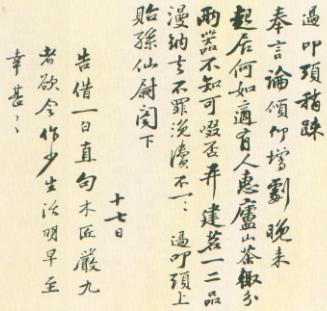 過叩頭稍疎
奉言論傾仰增劇晚来
起居何如適有人惠廬山茶輙分
兩器不知可啜否并建茗一二品
漫納去不罪浼瀆不一〻過叩頭上
貽孫仙尉閤下
十七日
告借一白直句木匠嚴九
者欲令作少生活明早至
幸甚〻